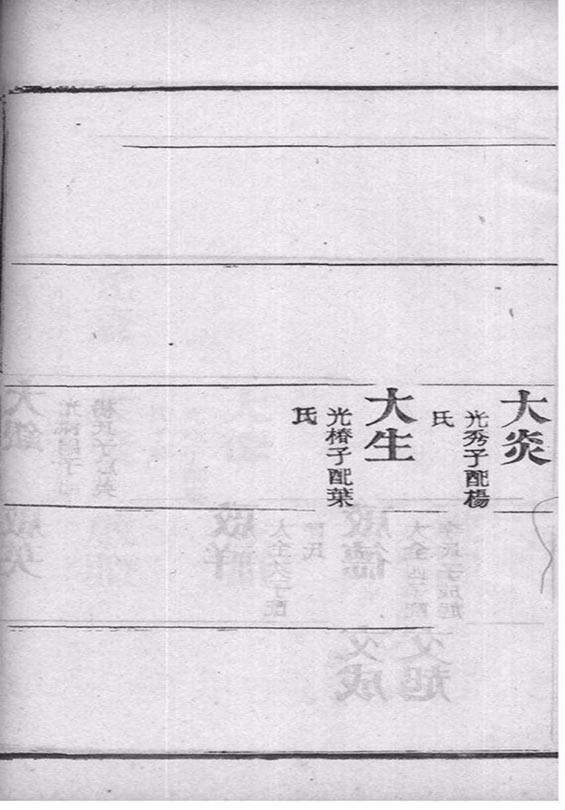 大炎
光秀子配楊
氏
大生
光椿子配葉
氏